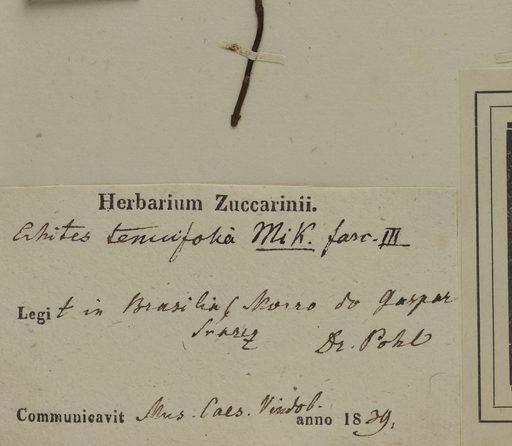 Herbarium Zuccarinii.
Echites tenuifolia Mik. fasc. III
Legit in Brasilia (Morro do Gaspar
Suarez
Dr. Pohl
Communicavit Mus. Caes. Vindob. anno 1839.